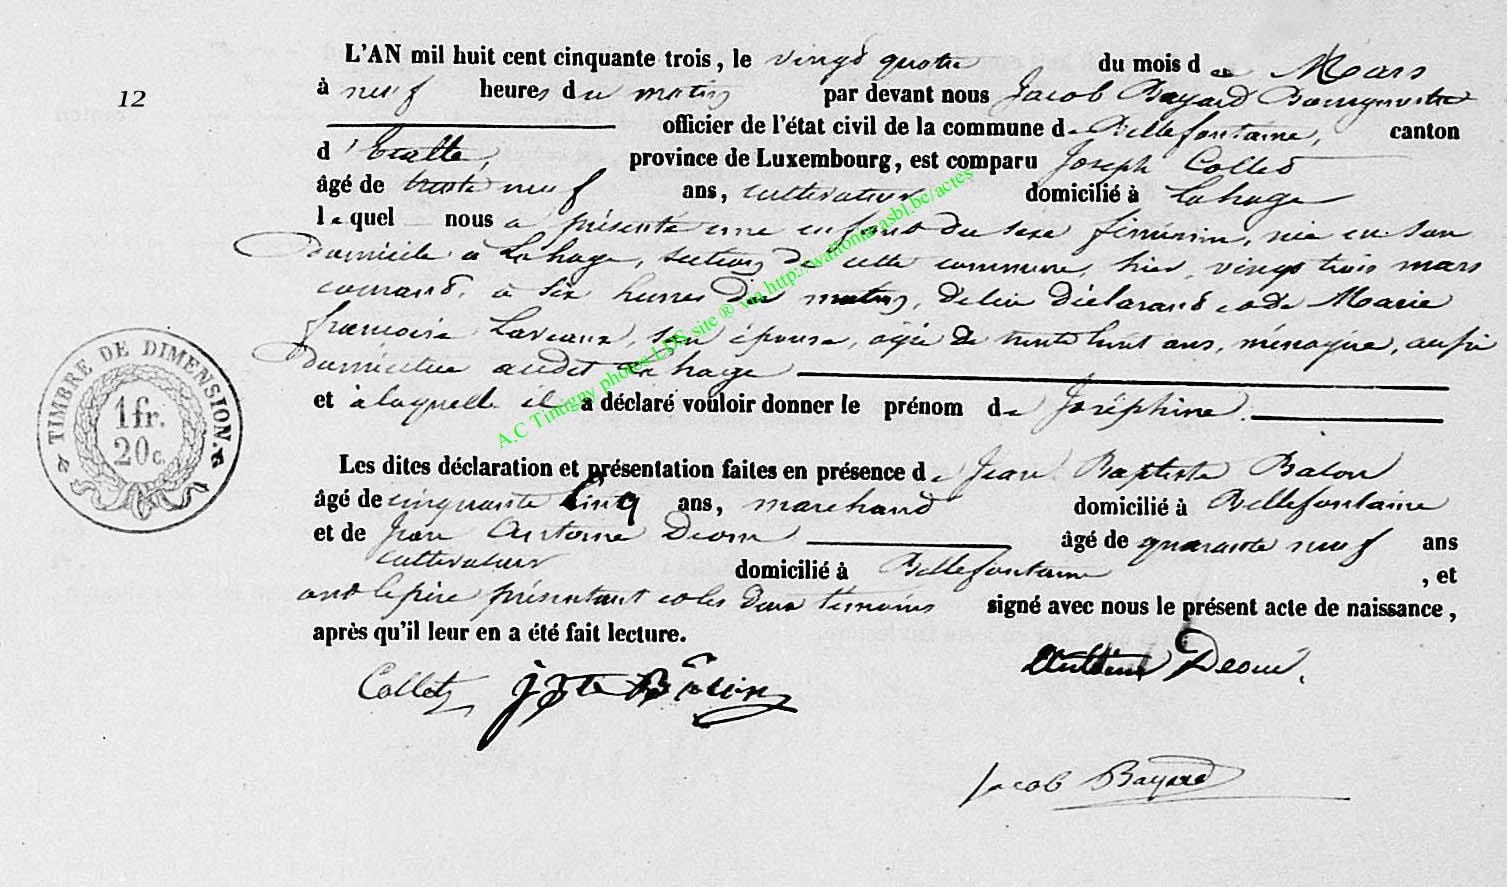 12
L'AN mil huit cent cinquante trois, le vingt quatre du mois de Mars
à neuf heures du matin par devant nous Jacob Bayard Bourgmestre
officier de l'état civil de la commune de Bellefontaine, canton
d'Etalle, province de Luxembourg, est comparu Joseph Collet
âgé de trente neuf ans, cultivateur domicilié à Lahage
lequel nous a présenté une enfant du sexe féminin, née en son
domicile à Lahage, section de cette commune, hier, vingt trois mars
courant, à six heures du matin, de lui déclarant et de Marie
françoise Laveaux, son épouse, agée de trente huit ans, ménagère, aussi
domiciliée audit Lahage
et à laquelle il a déclaré vouloir donner le prénom de Joséphine.
Les dites déclaration et présentation faites en présence de Jean Baptiste
âgé de cinquante cinq ans, marchand domicilié à Bellefontaine
et de Jean Antoine Deom âgé de quarante neuf ans
cultivateur domicilié à Bellefontaine, et
ont le père présentant et les deux témoins signé avec nous le présent acte de naissance,
après qu'il leur en a été fait lecture.
Collet
Deom
Jacob Bayard
TIMBRE DE DIMENSION.
1 fr.
20 c.
A.C Tintigny photos LDS, site ® via http://wallonia-asbl.be/actes